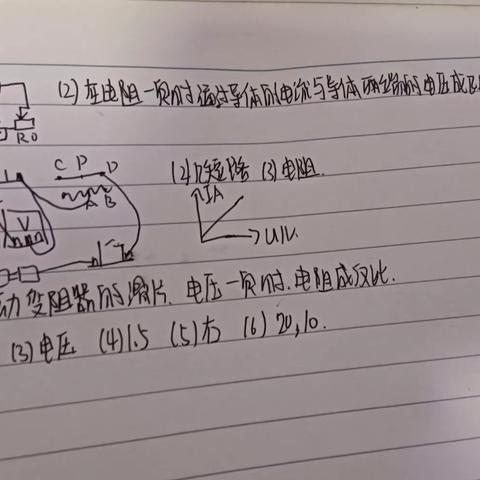 (2) 在电阻一定时通过导体的电流与导体两端的电压成正
R0
C P D
A B
V
(2)R短路 (3)电阻.
I/A
U/V.
动变阻器的滑片. 电压一定时.电阻成反比.
(3)电压 (4)1.5 (5)右 (6)20,10.